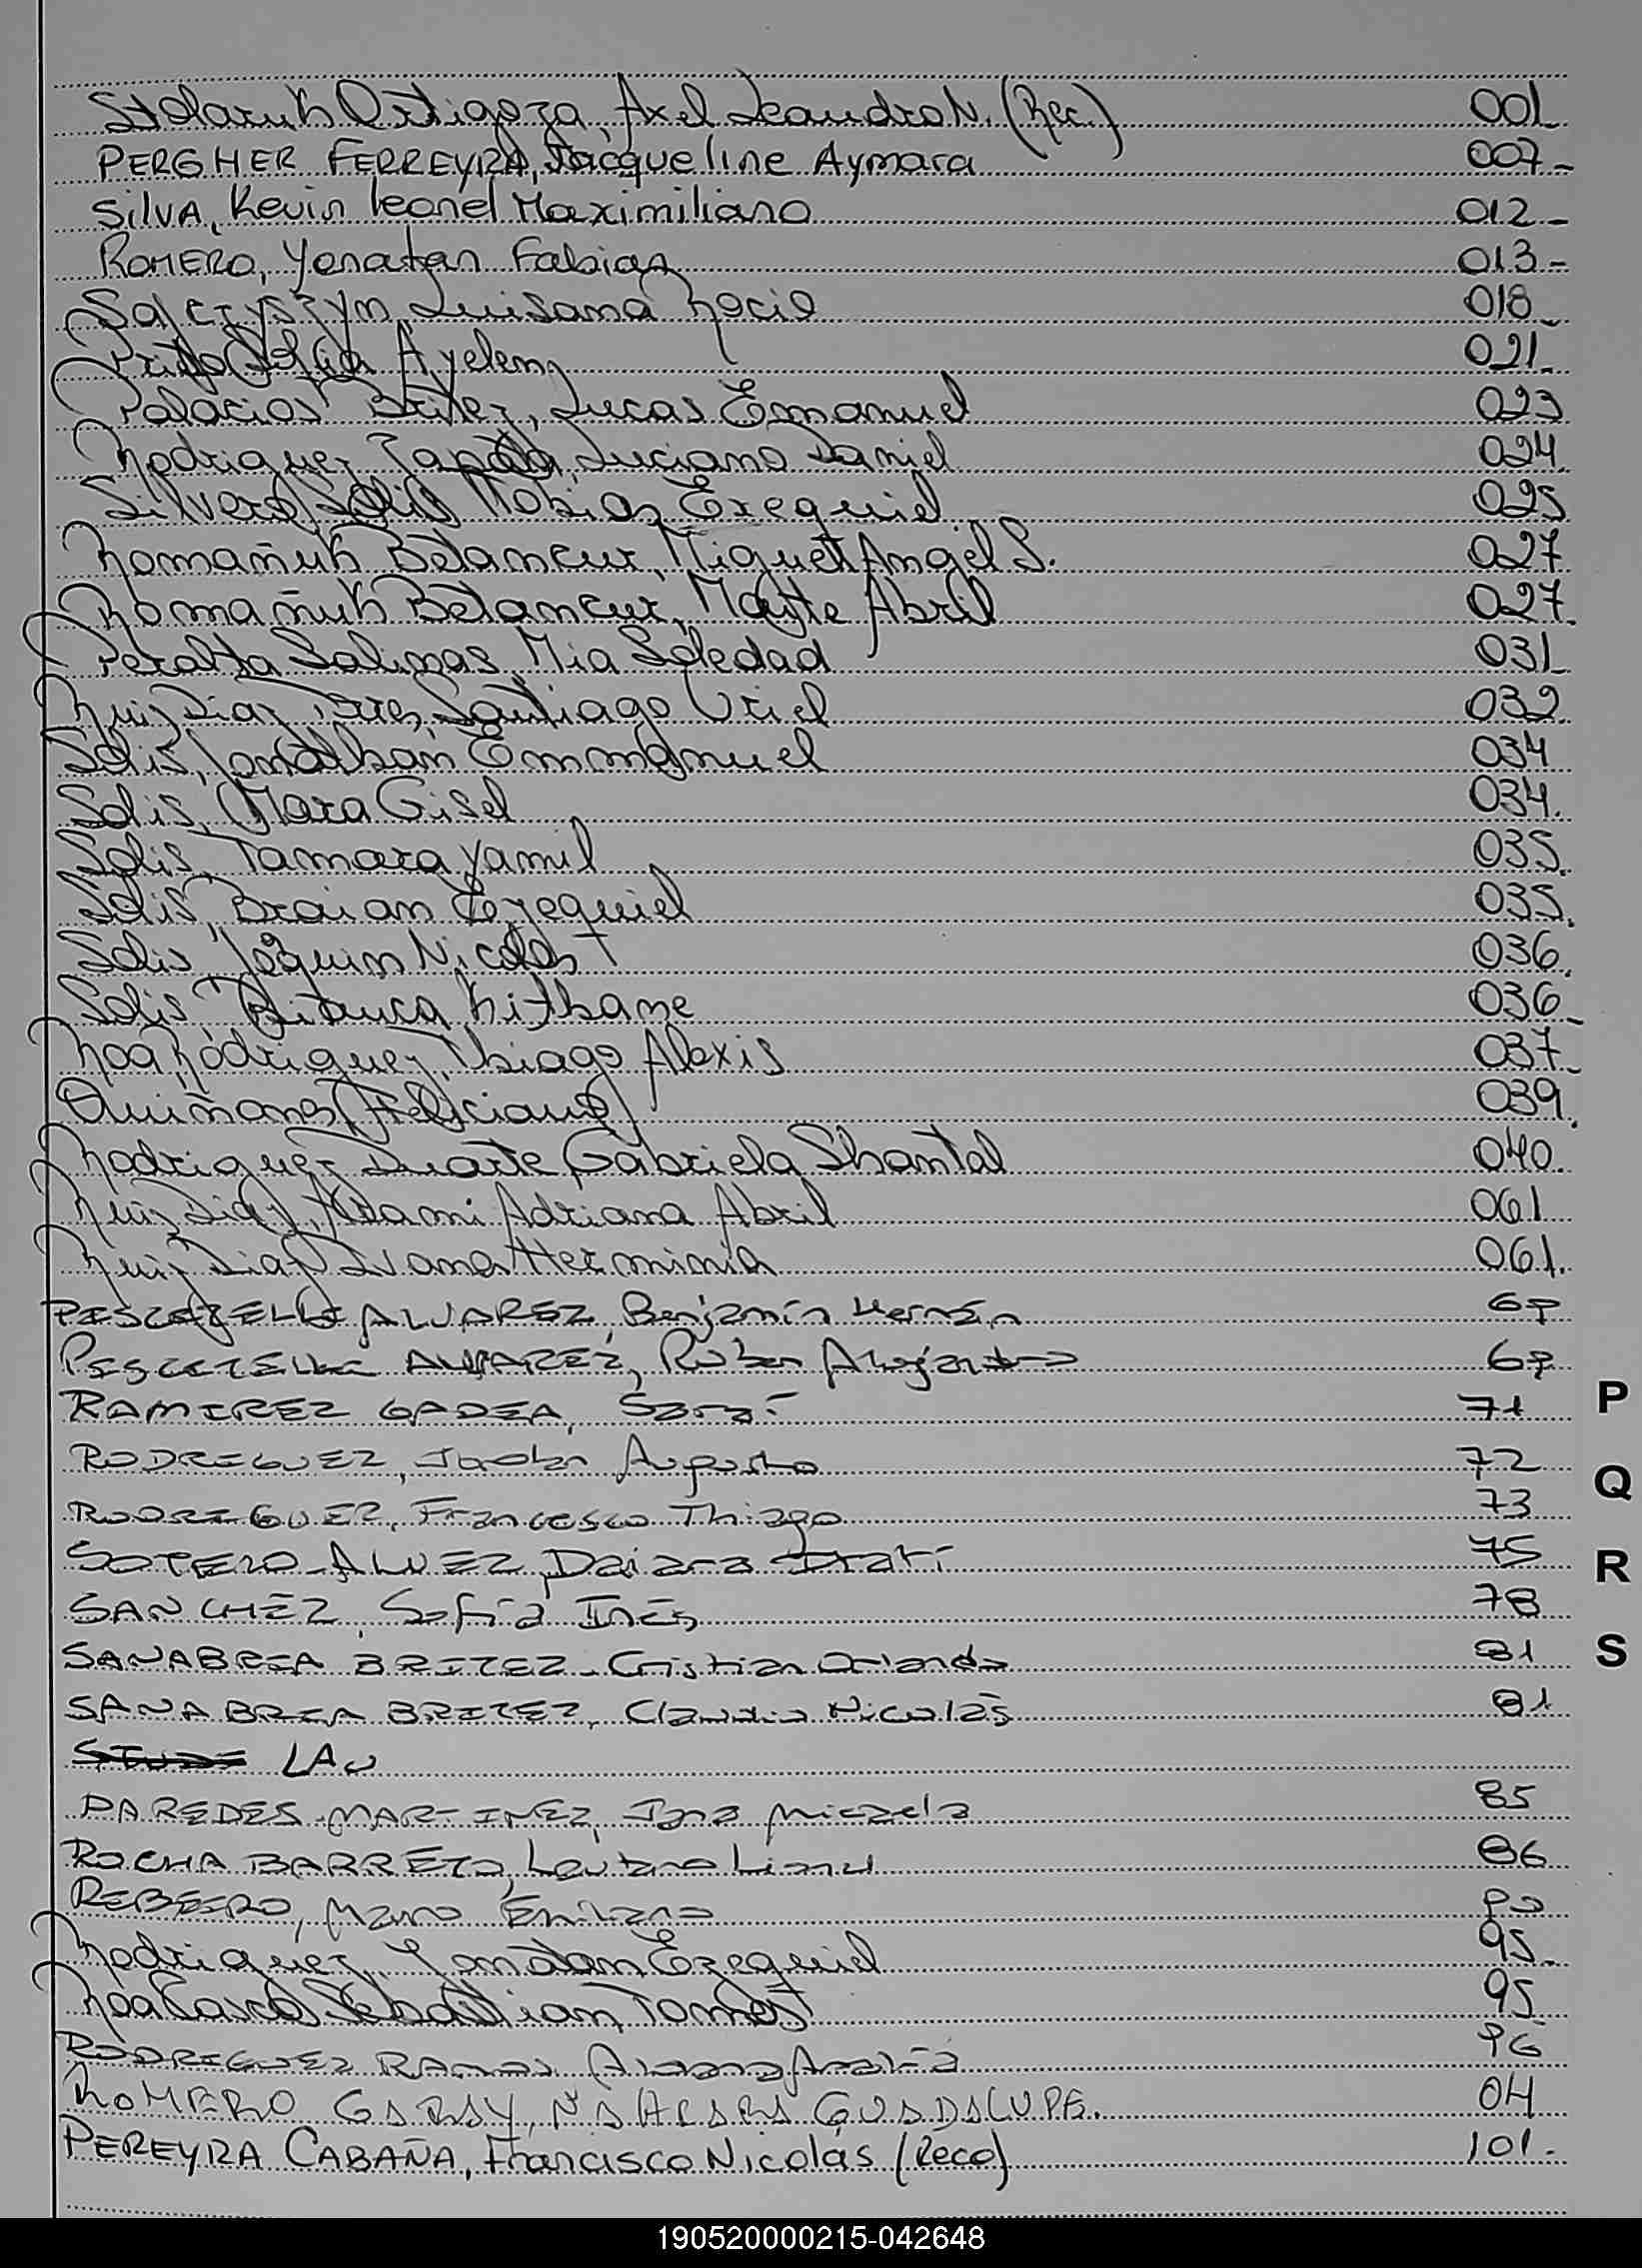 Stelaruk Ortigoza, Axel Leandro N. (Rec.) 001
PERGHER FERREYRA, Jacqueline Aymara 007-
SILVA, Kevin Leonel Maximiliano 012-
ROMERO, Yonatan Fabian 013-
Sajczyszyn, Luisana Rocio 018-
Ayelen 021.
Palacios Britez, Lucas Emanuel 023
Rodriguez Zapata, Luciano Daniel 024.
Silvero Solis Tobias Ezequiel 025
Romañuk Betancur, Miguel Angel S. 027
Romañuk Betancur, Mayte Abril 027.
Peralta Salinas Mia Soledad 031
Ruiz Diaz Santiago Uriel 032
Solis, Jonathan Emmanuel 034
Solis, Mara Gisel 034.
Solis, Tamara Yamil 035.
Solis Braian Ezequiel 035.
Solis Joquin Nicolas 036.
Solis Kithane 036-
Roa Rodriguez, Thiago Alexis 037-
Quiñones, Feliciano 039.
Rodriguez Duarte Gabriela Shantal 040.
Ruiz Diaz, Adriana Abril 061
Ruiz Diaz Ivana Herminia 061.
ALVAREZ, Benjamín Hernán 69
ALVAREZ, Rubén Alejandro 69
RAMIREZ GADEA, Saraí 71
RODRIGUEZ, Augusto 72
RODRIGUEZ, Francesco Thiago 73
SOTELO ALVEZ, Daiara Itatí 75
SANCHEZ, Sofía Inés 78
SANABRIA BRITEZ, Cristian Orlando 81
SANABRIA BRITEZ, Claudio Nicolás 81
LAU
PAREDES MARTINEZ, Micaela 85
ROCHA BARRETO, Lautaro Lionel 86
Emiliano 90
Rodriguez, Jonatan Ezequiel 95-
Roa Casco Sebastian Tomas 95
RODRIGUEZ RAMOS 96
ROMERO GARAY, NAHIARA GUADALUPE. 04
PEREYRA CABAÑA, Francisco Nicolás (Reco) 101-
P
Q
R
S
190520000215-042648